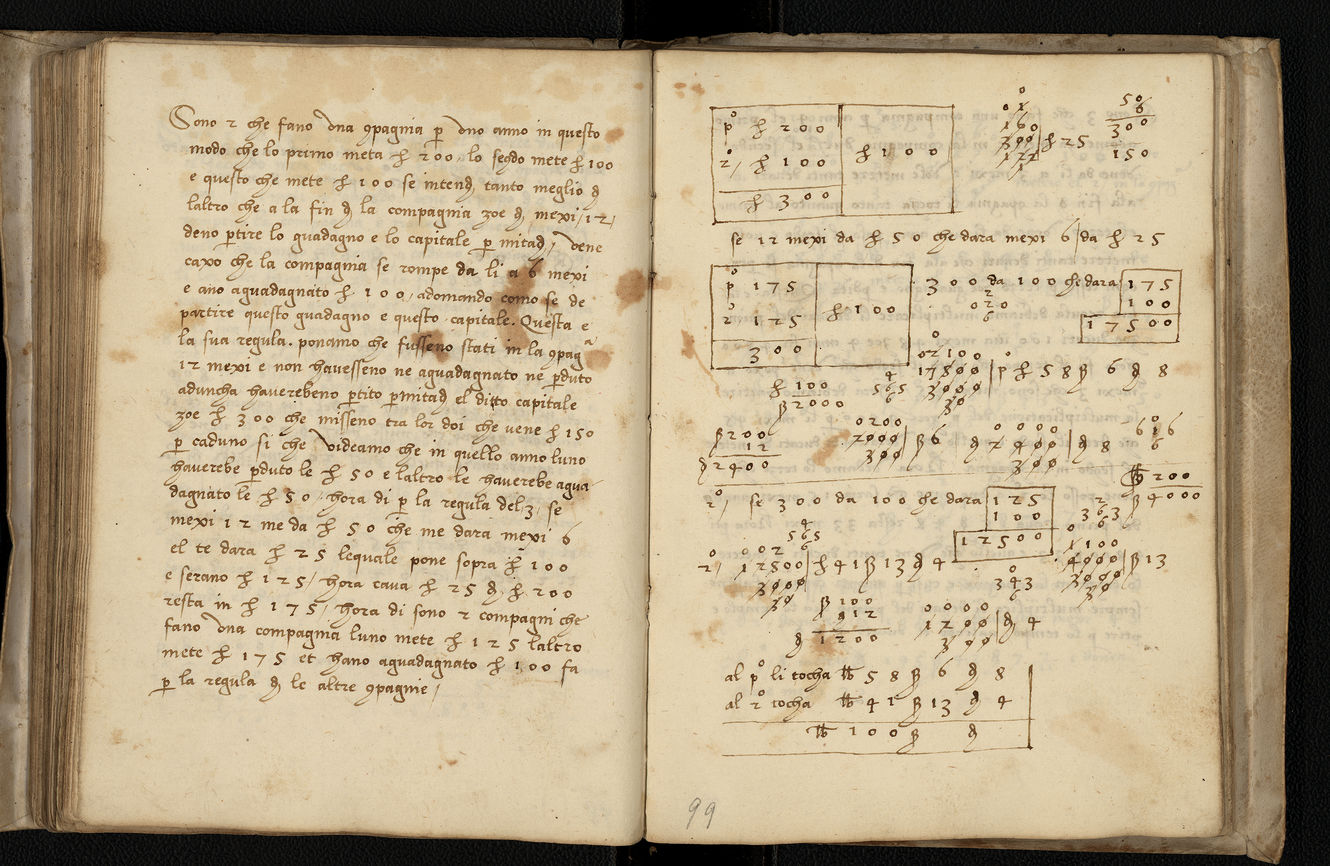 Sono 2 che fano una 9pagnia p uno anno in questo
modo che lo primo meta £ 200 lo segdo mete £ 100
e questo che mete £ 100 se intend tanto meglio d
laltro che a la fin d la compagnia zoe d mexi 12
deno ptire lo guadagno e lo capitale p mitad, vene
caxo che la compagnia se rompe da li a 6 mexi
e ano aguadagnato £ 100, adomando como se de
partire questo guadagno e questo capitale. Questa e
la sua regula. ponamo che fusseno stati in la 9pag^a
12 mexi e non havesseno ne aguadagnato ne pduto
aduncha haverebeno ptito p mitad el dito capitale
zoe £ 300 che misseno tra lor doi che vene £ 150
p caduno si che videamo che in quello anno luno
haverebe pduto le £ 50 e laltro le haverebe agua-
dagnato le £ 50, hora di p la regula del 3, se
mexi 12 me da £ 50 che me dara mexi 6
el te dara £ 25 lequale pone sopra £ 100
e serano £ 125, hora cava £ 25 d £ 200
resta in £ 175, hora di sono 2 compagni che
fano una compagnia luno mete £ 125 laltro
mete £ 175 et hano aguadagnato £ 100 fa
p la regula d le altre 9pagnie,
p° £ 200
2°, £ 100 £ 100
£ 300
£ 25
50
6
300
150
se 12 mexi da £ 50 che dara mexi 6 da £ 25
p° 175
2° 125 £ 100
300
300 da 100 che dara 175
100
17500
£ 100
ß 2000
565
17500 p° £ 58 ß 6 d 8
3000
ß 200
12
d 2400
ß 6
2400 d 8
300
616
6
2°, se 300 da 100 che dara 125
100
12500
£ 200
ß 4000
363
565
2°, 12500 £ 41 ß 13 d 4
3000
343
4000 ß 13
3000
ß 100
d 12
d 1200
1200 d 4
300
al p° li tocha £ 58 ß 6 d 8
al 2° tocha £ 41 ß 13 d 4
£ 100 ß d
99